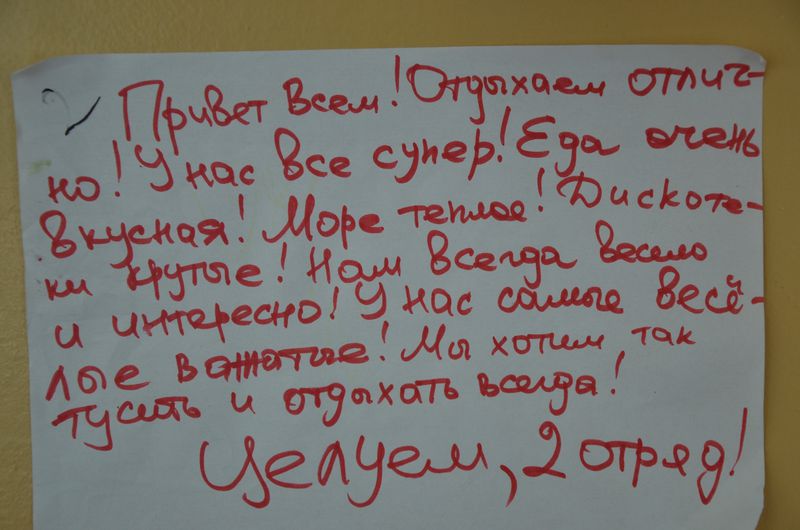 Привет всем! Отдыхаем отлич-
но! У нас все супер! Еда очень
вкусная! Море теплое! Дискоте-
ки крутые! Нам всегда весело
и интересно! У нас самые весё-
лые вожатые! Мы хотим так
тусить и отдыхать всегда!
Целуем, 2 отряд!